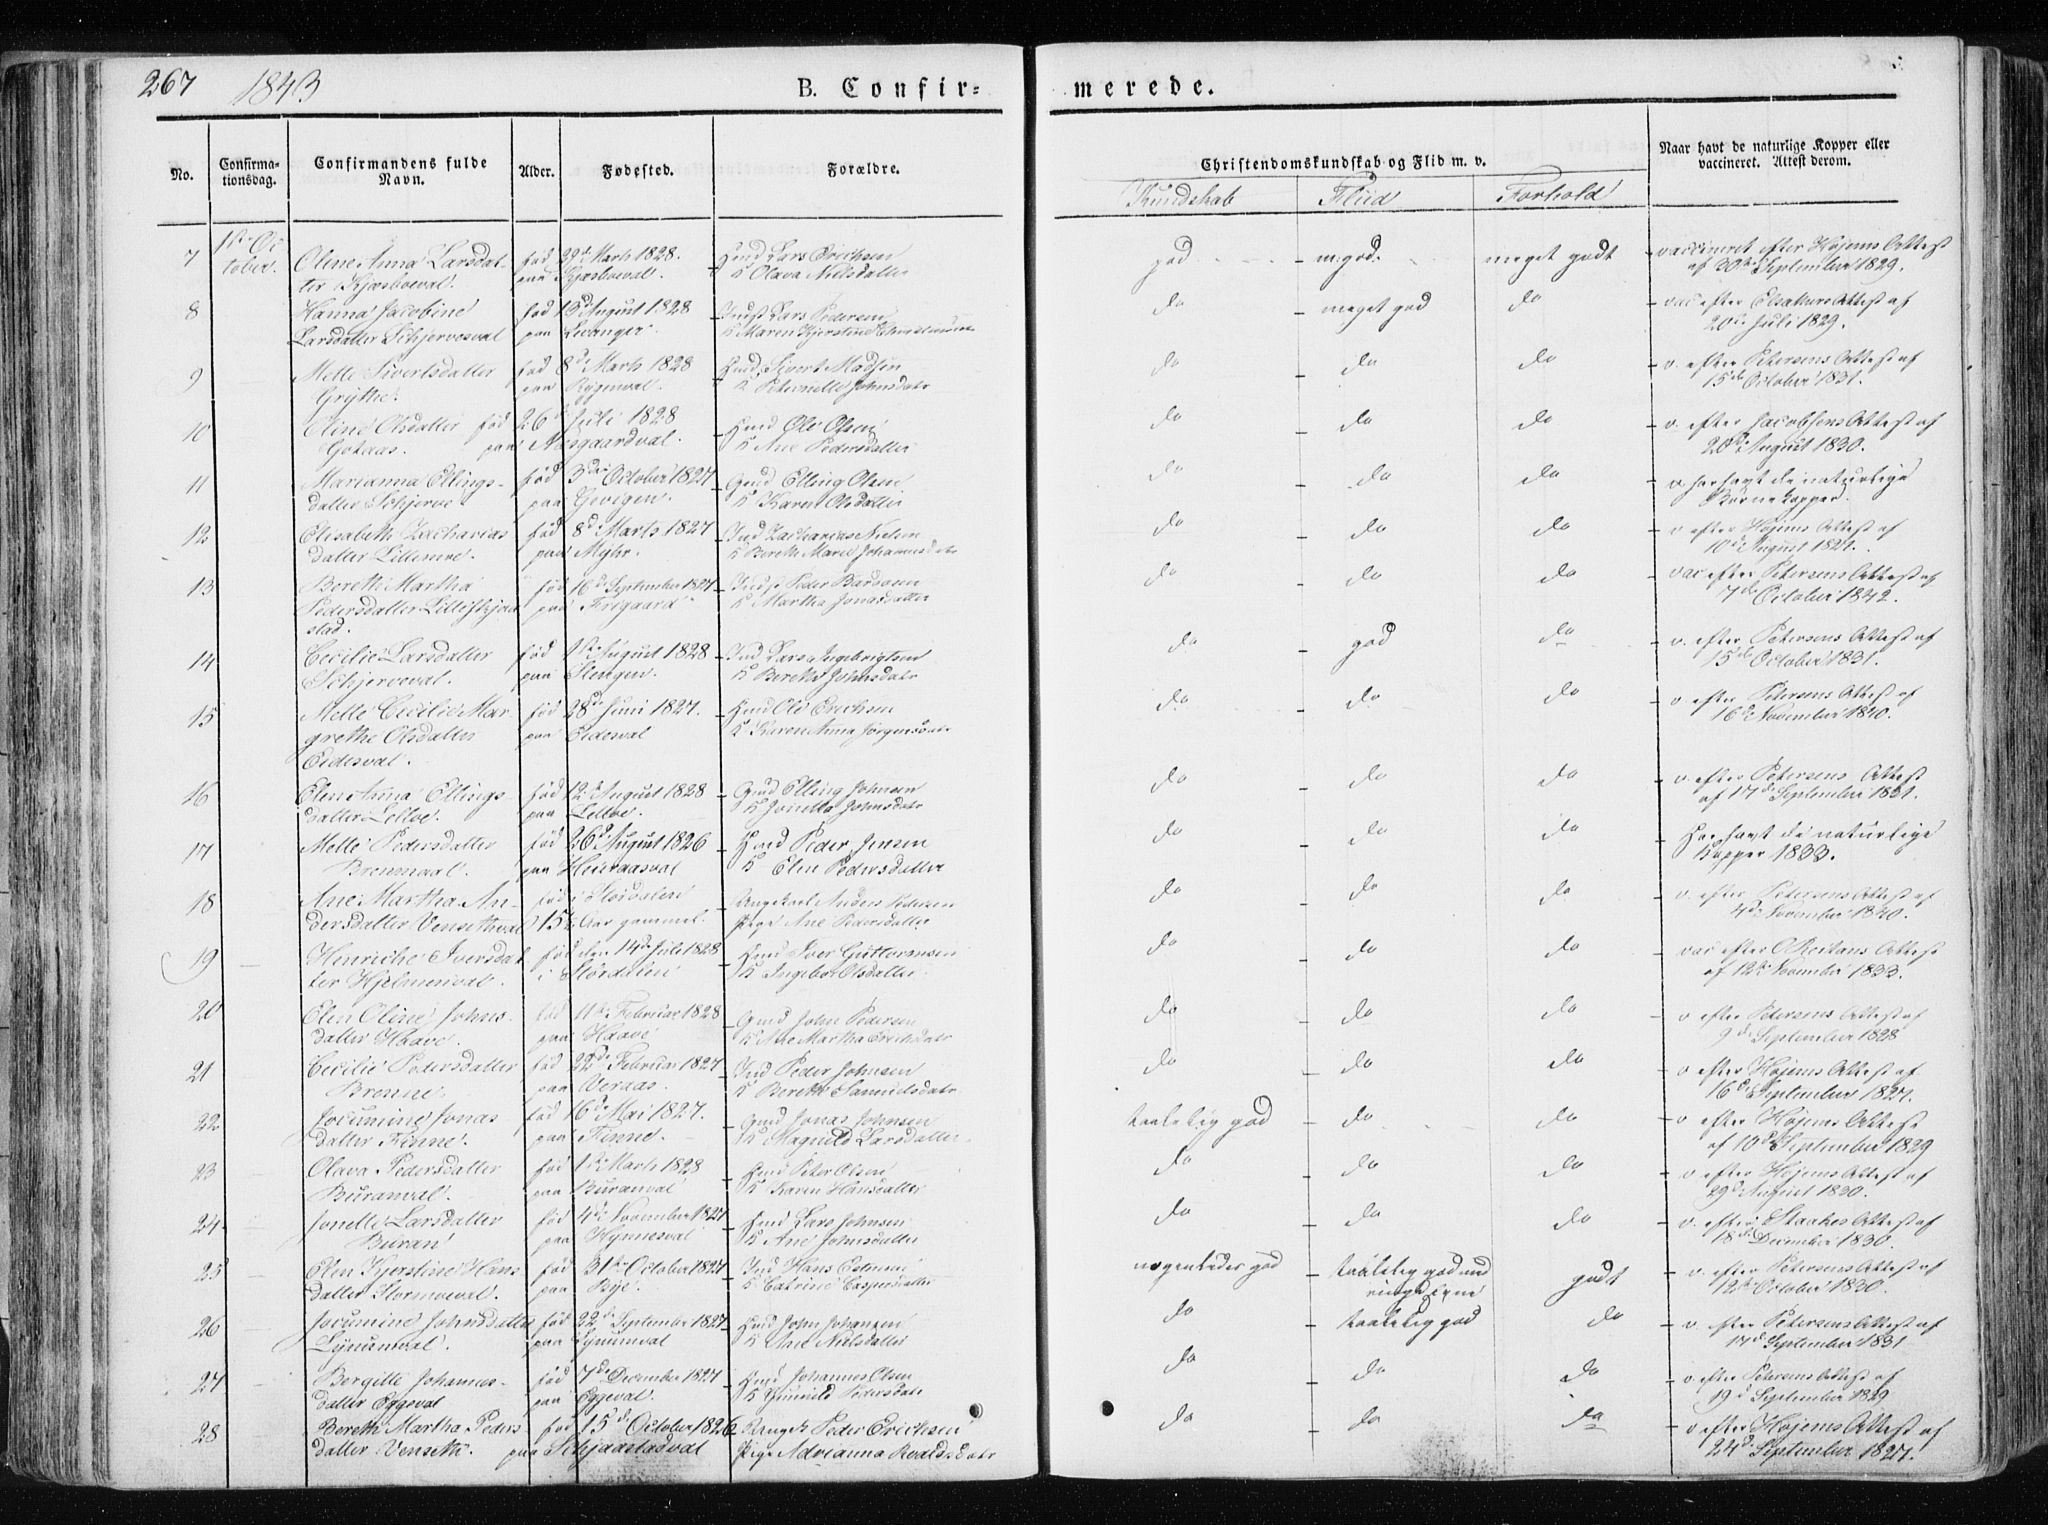 267 1843 B. Confir= merede.
No. Confirma-tionsdag. Confirmandens fulde Navn. Alder. Fødested. Forældre. Christendomskundskab og Flid m. v. Naar havt de naturlige Kopper eller vaccineret. Attest derom.
Kundskab Fliid Forhold
7 1ste Oc- Oline Anna Larsdat- fød 29de Marts 1828. Huusmd Lars Erichsen god m. god. meget godt vaccineret efter Højems Attest
tober. ter paa K Olava Nielsdatter af 30te September 1829.
8 Hanna Jacobine fød 13de August 1828 Inds: Lars Pedersen do meget god do vac efter Attest af
Larsdatter Schjervesval paa Levanger K Maren Kjerstine 20de Juli 1829.
9 Melle Sivertsdatter fød 8de Marts 1828 Huusmd Sivert Madsen do do do v. efter Petersens Attest af
Grythe. paa K Peternelle Johnsdatr 15de October 1831.
10 Eline Olsdatter fød 26de Juli 1828 Huusmd Ole Olsen do do do v. efter Jacobsens Attest af
Gotaas. paa Nesgaardval. K Ane Pedersdatter 20de August 1830.
11 Marianna Ellings- fød 3die October 1827 Gmd Elling Olsen do do do v. har havt de naturlige
datter Schjerve paa K Karen Olsdatter Børnekopper.
12 Elisabeth Zacharias fød 8de Marts 1827 Ind Zacharias Nielsen do do do v. efter Højems Attest af
datter Lillemoe. paa Myhr. K Bereth Marie Johannesdatr 10de August 1827.
13 Bereth Martha fød 16de September 1827 Inds: Peder Bardosen do do do vac efter Petersens Attest af
Pedersdatter paa Frigaard K Martha Jonasdatter 7de October 1842.
stad.
14 Cecilie Larsdatter fød 1ste August 1828 Ind Lars Ingebrigtsen do god do v. efter Petersens Attest af
Schjerveval. paa Slengen. K Bereth Johnsdatr 15de October 1831.
15 Melle Cecilie Mar- fød 28de Juni 1827. Huusmd Ole Erichsen do do do v efter Petersens Attest af
grethe Olsdatter paa Eidesval K Karen Anna Jørgensdatr 16de November 1840.
Eidesval.
16 Elen Anna Ellings- fød 12te August 1828 Gmd Elling Johnsen do do do v. efter Petersens Attest
datter Lelloe. paa Lelloe. K Jonetta Johnsdatr af 17de September 1831.
17 Melle Pedersdatter fød 26de August 1826 Huusmd Peder Jensen do do do Har havt de naturlige
Brenmoel. paa K Elen Pedersdatter Kopper 1833.
18 Ane Martha An- fød i Størdalen Ungekarl Anders Pedersen do do do v. efter Petersens Attest af
dersdatter Vensethval 15½ Aar gammel. Pige Ane Pedersdatter 4de November 1840.
19 Henriche Iversdat fød den 14de Juli 1828 Huusmd Iver Guttormsen do do do vac efter Reitans Attest
ter Hjelmenval. i Størdalen K Ingebor Olsdatter. af 12te November 1833.
20 Elen Oline Johns- fød 11te Februar 1828 Gmd John Pedersen do do do v efter Petersens Attest af
datter Haave. paa Haave K Ane Martha Erichsdatr 9de September 1828
21 Cecilie Pedersdatter fød 22de Februar 1827 Ind Peder Johnsen do do do v efter Højems Attest af
Brenne. paa Veraas. K Bereth Samuelsdatr 16de September 1827.
22 Jocumine Jonas fød 16de Mai 1827. Gmd Jonas Johnsen taalelig god do do v efter Højems Attest
datter Finne. paa Finne. K Magnild Larsdatter af 10de September 1829
23 Olava Pedersdatter fød 1ste Marts 1828 Huusmd Peter Olsen do do do v efter Højems Attest af
Buranval. paa Buranval K Karen Hansdatter 29de August 1830.
24 Jonelle Larsdatter fød 4de November 1827 Huusmd Lars Johnsen do do do v. efter Staabes Attest af
Buran paa Hynnesval K Ane Johnsdatter 18de December 1830.
25 Elen Kjerstine Hans fød 31te October 1827 Ind Hans nogenledes god taalelig god med godt v. efter Petersens Attest af
datter Stormoeval. paa Bye. K Catrine Caspersdatter ringe Evne 12te October 1830.
26 Jocumine Johnsdatter fød 22de September 1827 Huusmd John Johansen do taalelig god do v efter Petersens Attest af
Lynumval. paa Lynumval K Ane Nielsdatter 17de September 1831
27 Bergitte Johannes- fød 7de December 1827 Huusmd Johannes Olsen do do do v efter Petersens Attest af
datter Eggeval paa Eggeval. K Gunnild Pedersdatr 19de September 1829
28 Bereth Martha Peders- fød 15de October 1826 Ungk Peder Ericksen do do do v efter Højems Attest af
datter Venseth. paa Schjaastadval Pige Adrianna Roaldsdatr 24de September 1827.